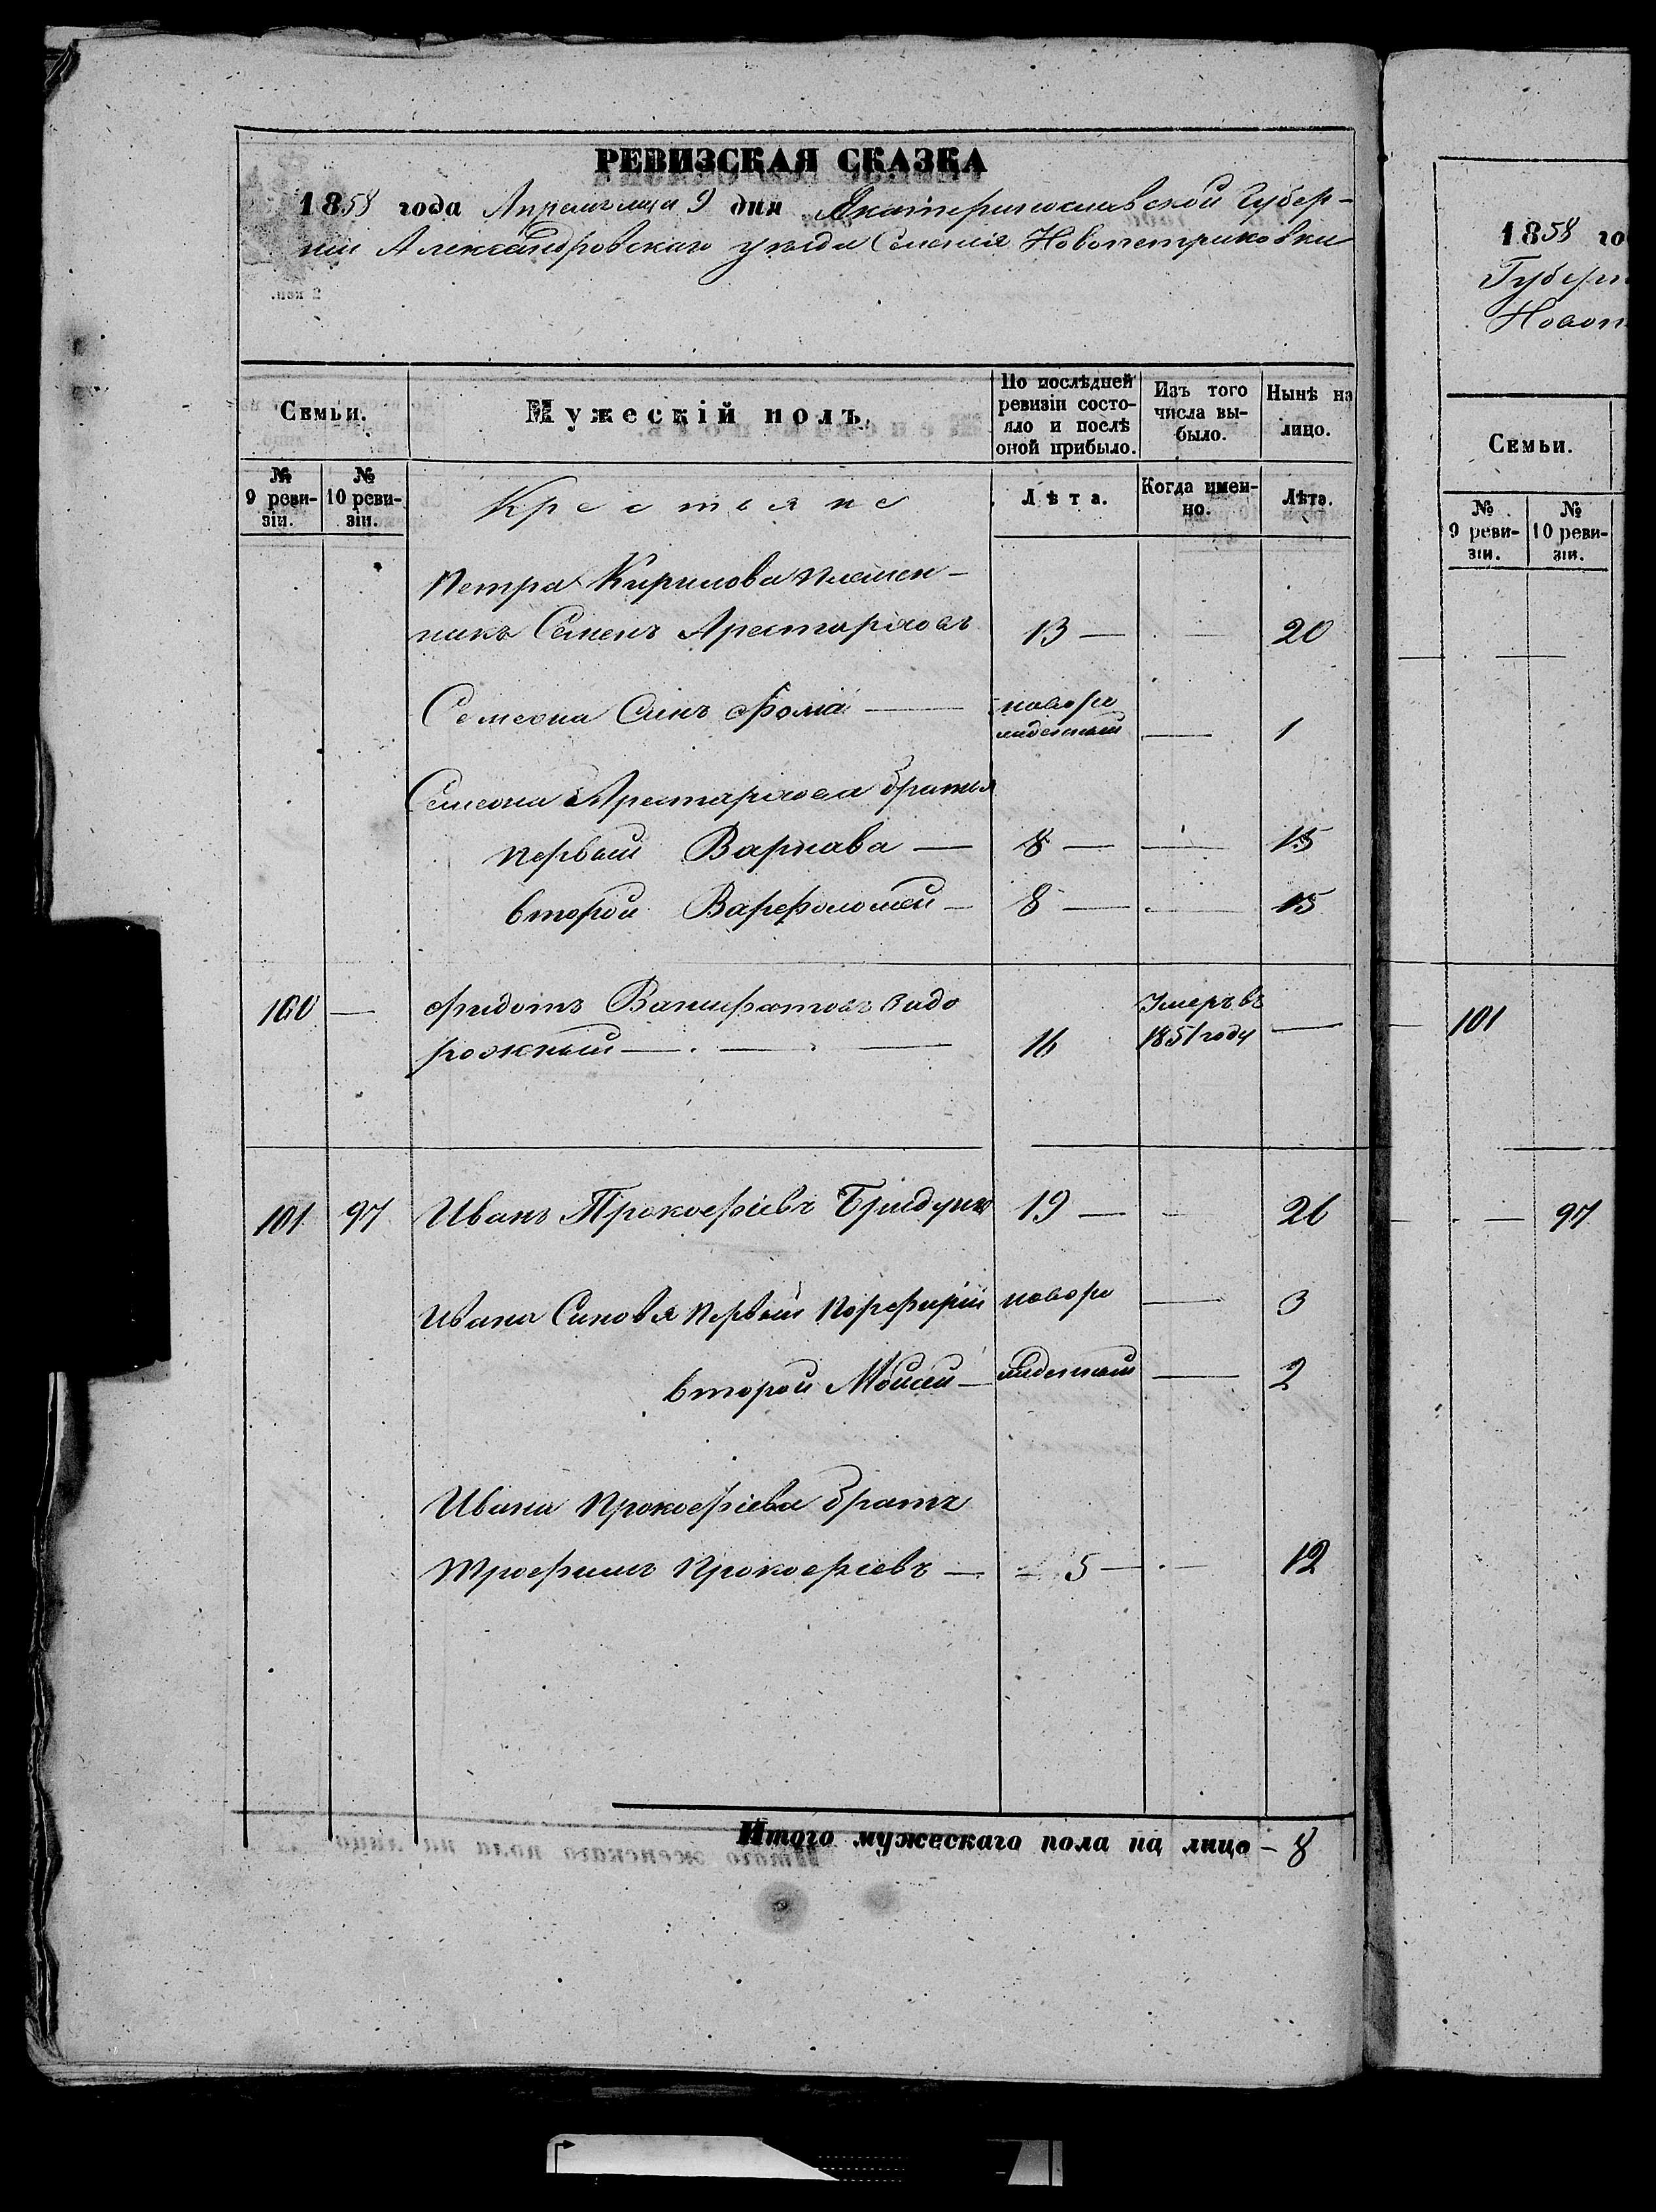 РЕВИЗСКАЯ СКАЗКА
1858 года Апреля мца 9 дня Екатеринославской Губер-
ніи Александровскаго уезда Селенія Новопетриковки
Семьи.
Мужескій полъ.
По послѣдней ревизіи состо-яло и послѣ оной прибыло.
Изъ того числа вы-было.
Нынѣ на лицо.
№ 9 реви-зіи.
№ 10 реви-зіи.
Крестьяне
Лѣта.
Когда имен-но.
Лѣта.
Петра Кирилова племен-
никъ Семенъ Аристарховъ 13 — 20
Семена Синъ Фома — новоро
жденный — 1
Семена Аристархова братья
первый Варнава — 8 — — 15
второй Варефоломей — 8 — — 15
100 — Фидотъ Ванифатовъ Задо
рожный — 16 Умеръ въ 1851 году —
101 97 Иванъ Прокоефіевъ 19 — - 26
Ивана Синовя первый Порефирій новоро — 3
второй Моисей — жденный — 2
Ивана Прокоефіева братъ
Трофимъ Прокоефіевъ — 5 — 12
Итого мужескаго пола на лицо - 8
1858 го
Губерн
Новоп
Семьи.
№ 9 реви-зіи.
№ 10 реви-зіи.
101
97